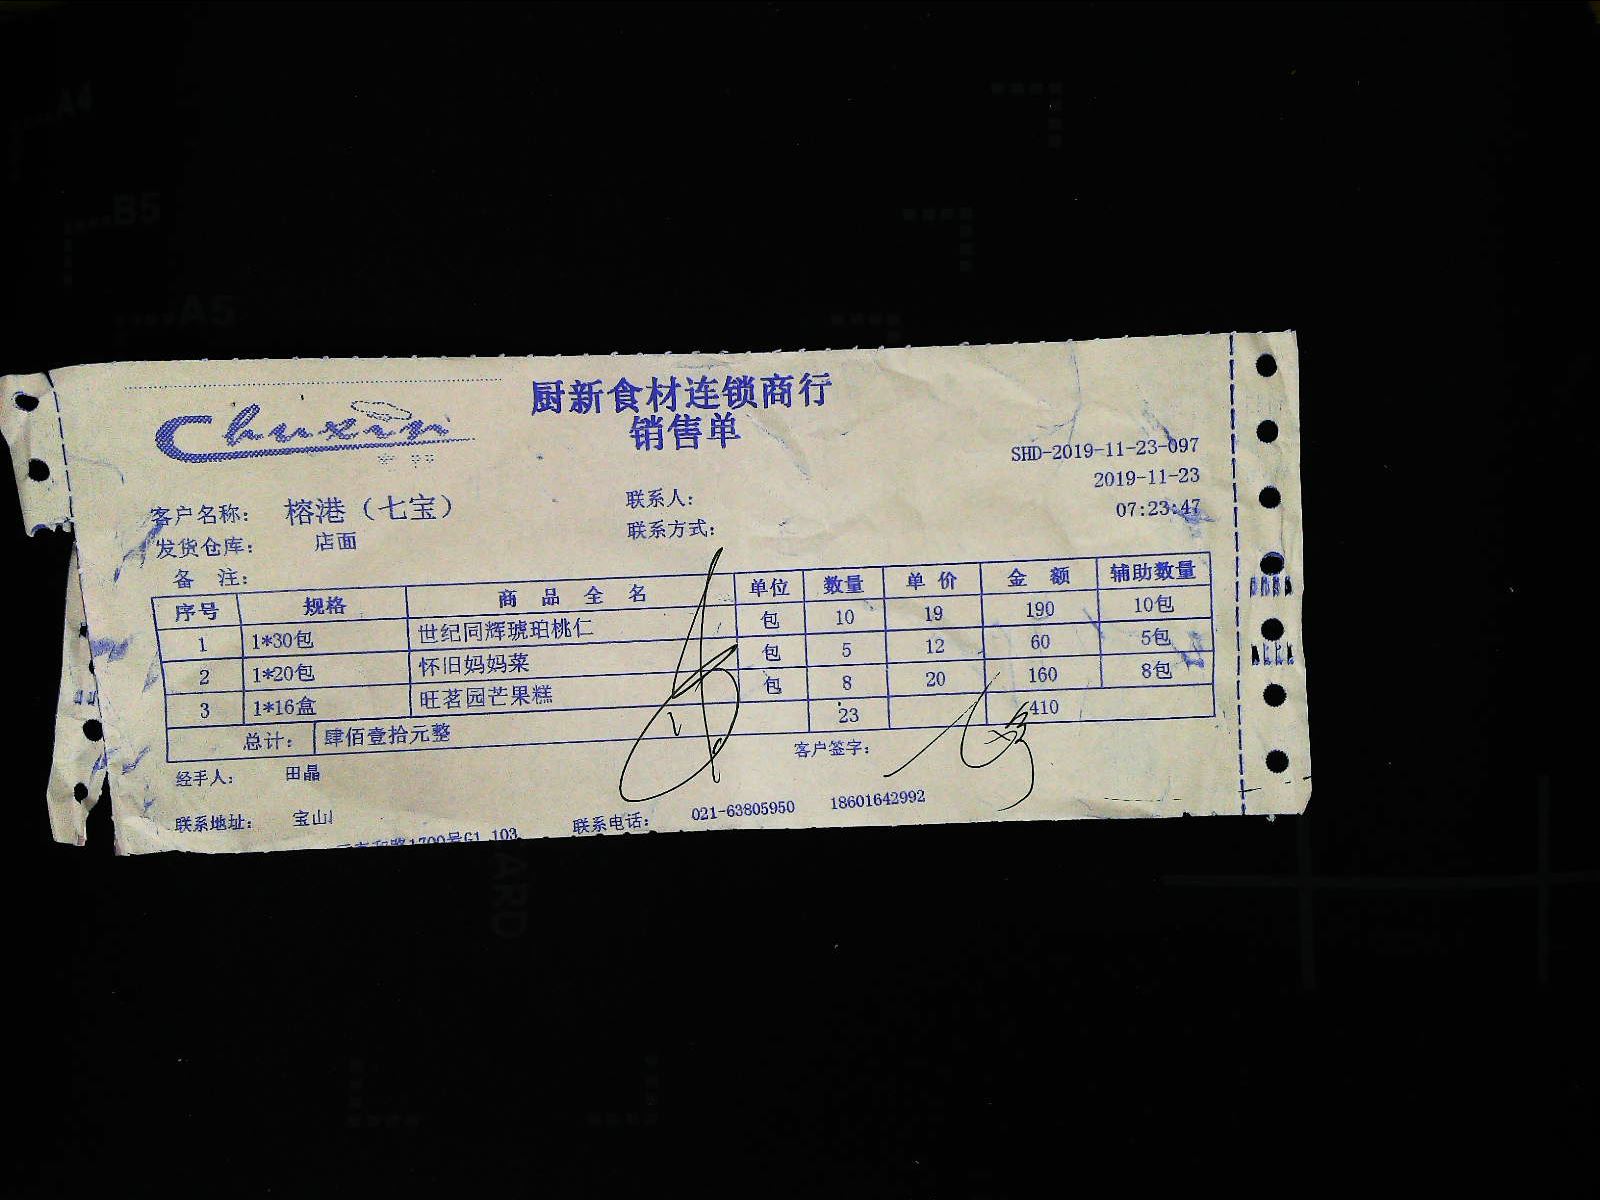 厨新食材连锁商行
Chuxin
销售单
SHD-2019-11-23-097
2019-11-23
07:23:47
客户名称： 榕港（七宝） 联系人：
发货仓库： 店面 联系方式：
备 注：
序号 规格 商 品 全 名 单位 数量 单 价 金 额 辅助数量
1 1*30包 世纪同辉琥珀桃仁 包 10 19 190 10包
2 1*20包 怀旧妈妈菜 包 5 12 60 5包
3 1*16盒 旺茗园芒果糕 包 8 20 160 8包
23 410
总计： 肆佰壹拾元整
客户签字：
经手人： 田晶
联系地址： 宝山 联系电话： 021-63805950 18601642992
路1700号G1 103
A4
B5
A5